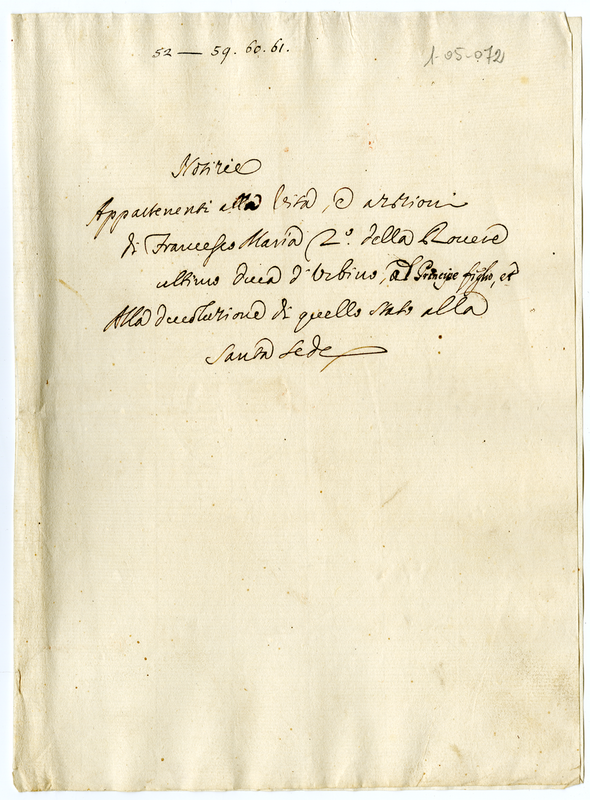 52 — 59. 60. 61.
1-05-072
Notizie
Appartenenti alla Vita, e azzioni
di Francesco Maria 2.º della Rovere
ultimo duca d'Urbino, al Principe figlio, et
Alla devoluzione di quello stato alla
Santa Sede